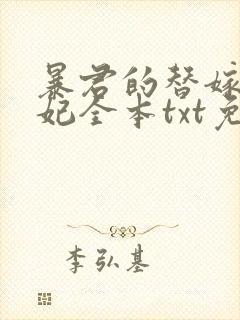 暴君的替嫁
妃全本txt免
李弘基